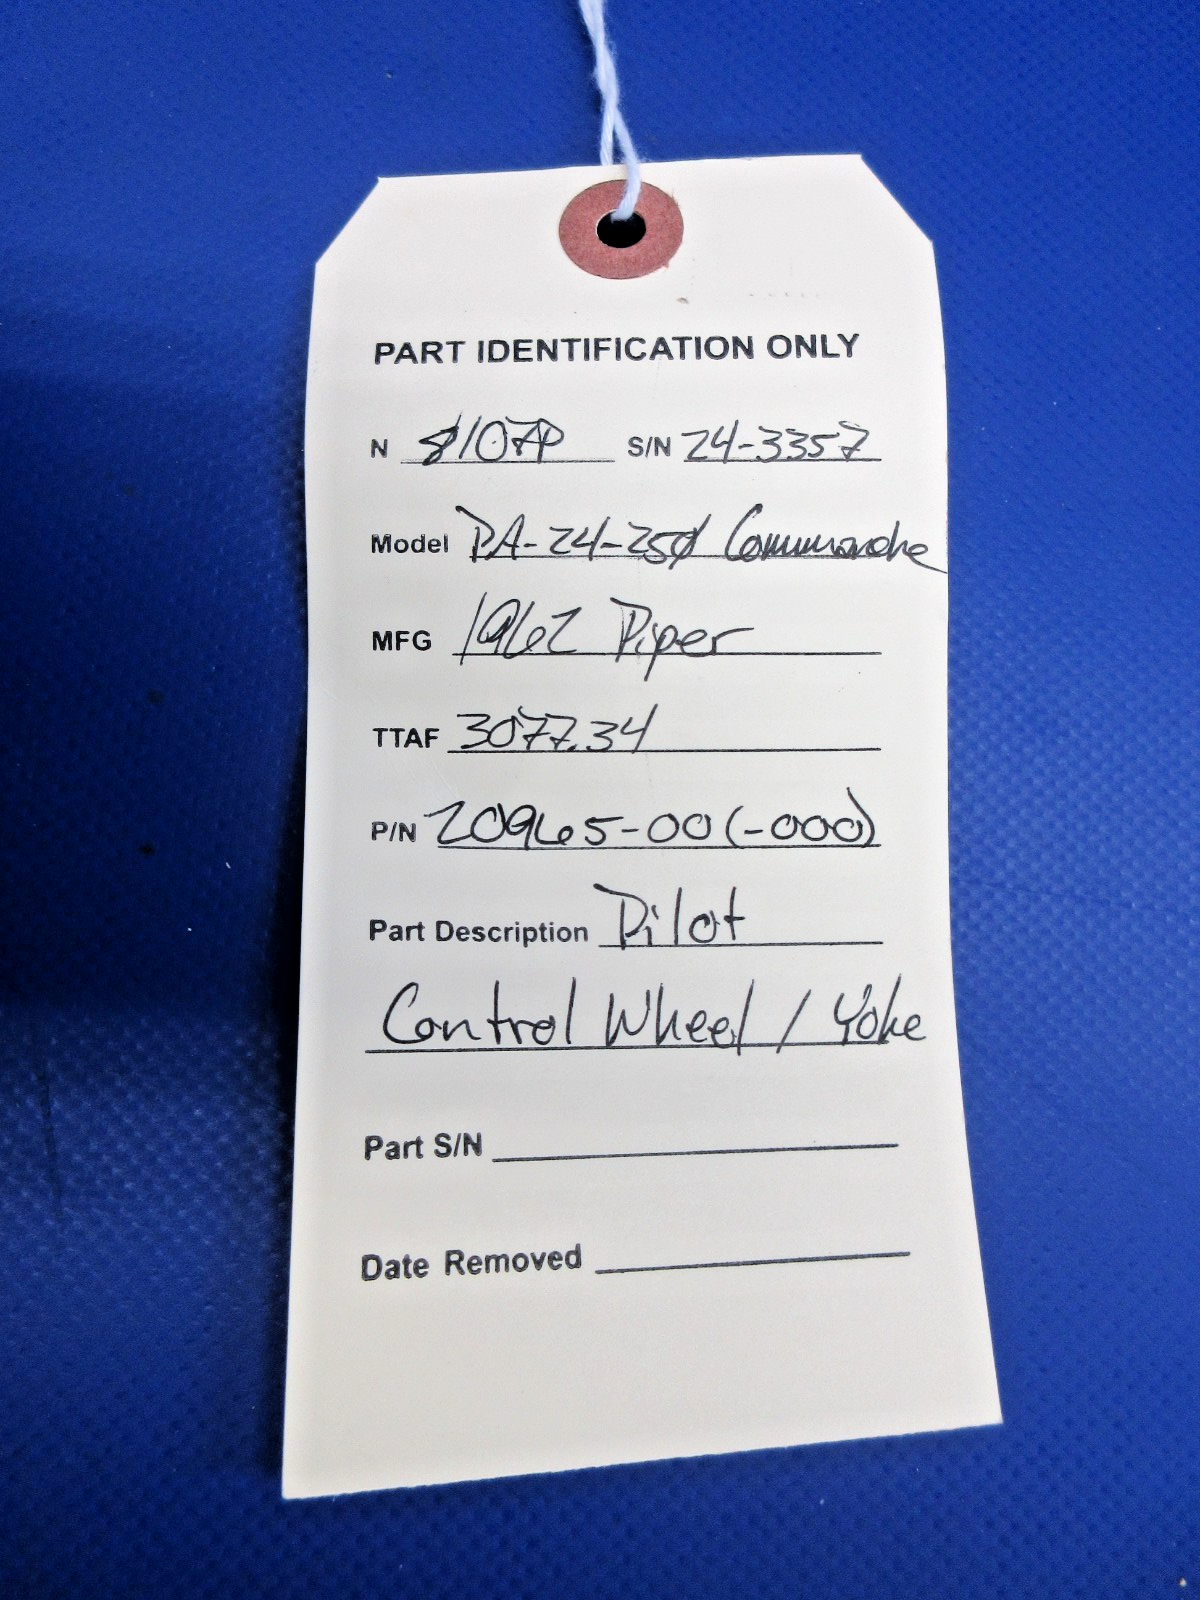 PART IDENTIFICATION ONLY
N 8107P S/N 24-3357
Model PA-24-250 Commanche
MFG 1962 Piper
TTAF 3077.34
P/N 20965-00 (-000)
Part Description Pilot
Control Wheel / Yoke
Part S/N
Date Removed